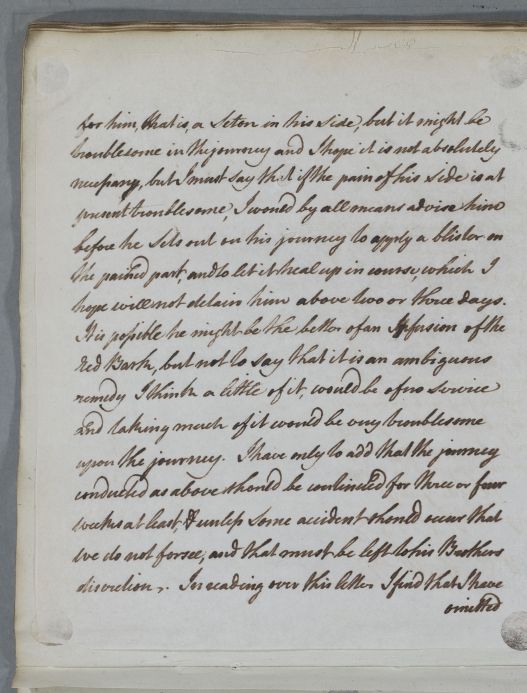 for him, that is, a Seton in his side, but it might be
troublesome in the journey and I hope it is not absolutely
necessary, but I must say that if the pain of his side is at
present troublesome, I would by all means advise him
before he sets out on his journey to apply a blister on
the pained part, and to let it heal up in course, which I
hope will not detain him above two or three days.
It is possible he might be the better of an Infusion of the
red Bark, but not to say that it is an ambiguous
remedy I think a little of it, would be of no service
and taking much of it would be very troublesome
upon the journey. I have only to add that the journey
conducted as above should be continued for three or four
weeks at least, & unless some accident should occur that
we do not forsee, and that must be left to his Brothers
discretion. In reading over this letter I find that I have
omitted